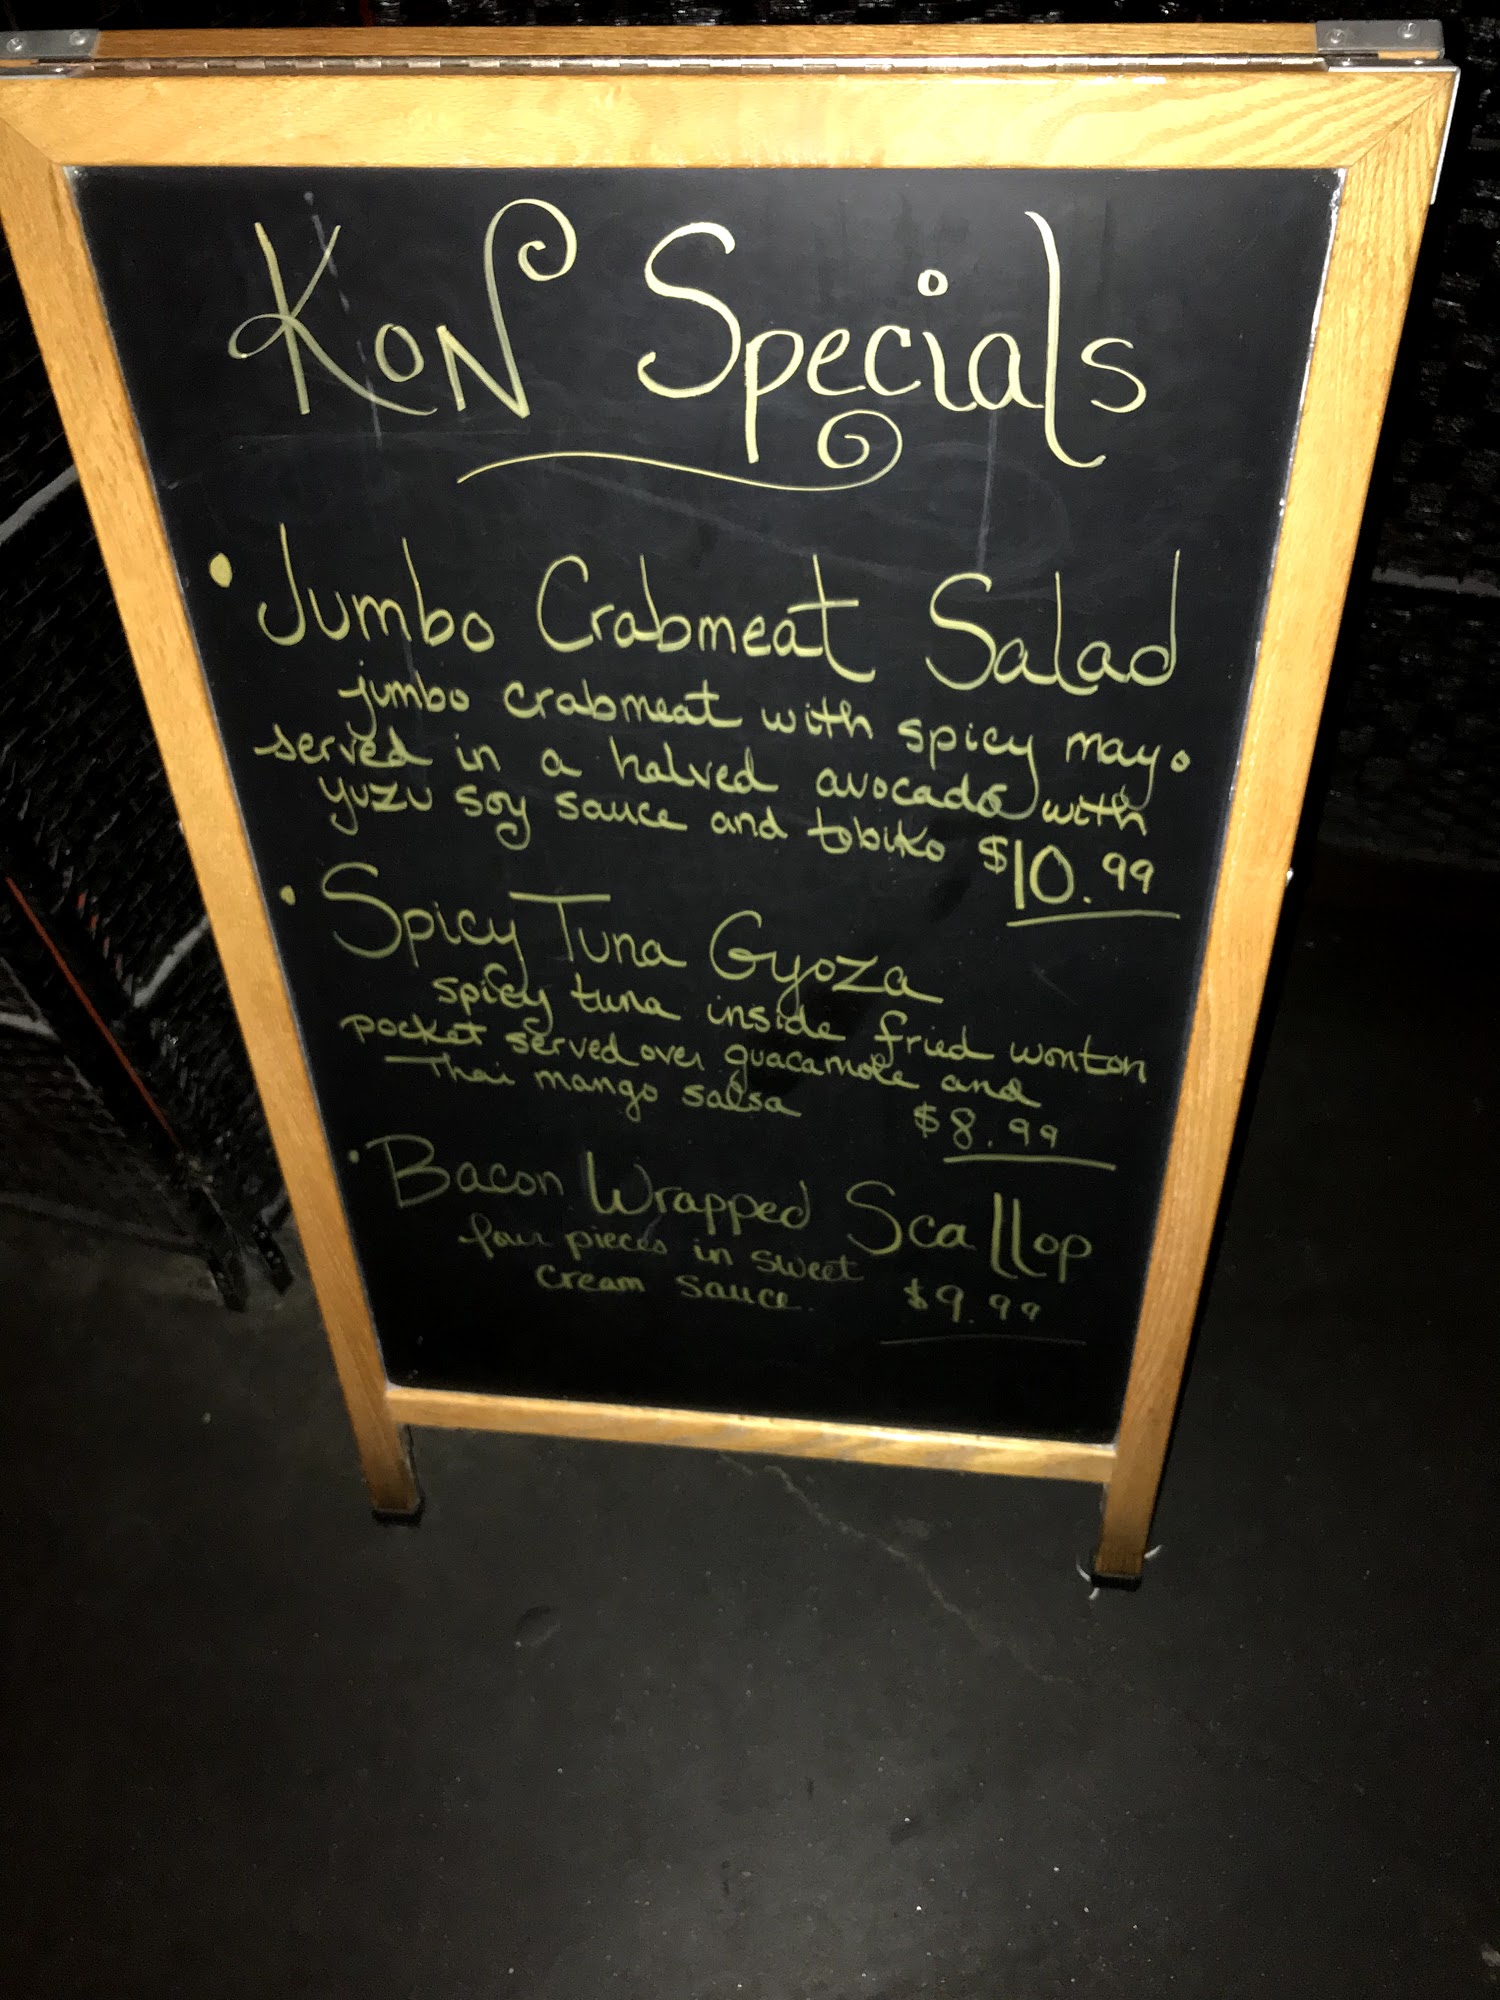 Kon Specials
• Jumbo Crabmeat Salad
jumbo crabmeat with spicy mayo
served in a halved avocado with
yuzu soy sauce and tobiko $10.99
• Spicy Tuna Gyoza
spicy tuna inside fried wonton
pocket served over guacamole and
Thai mango salsa $8.99
• Bacon Wrapped Scallop
four pieces in sweet
cream sauce. $9.99